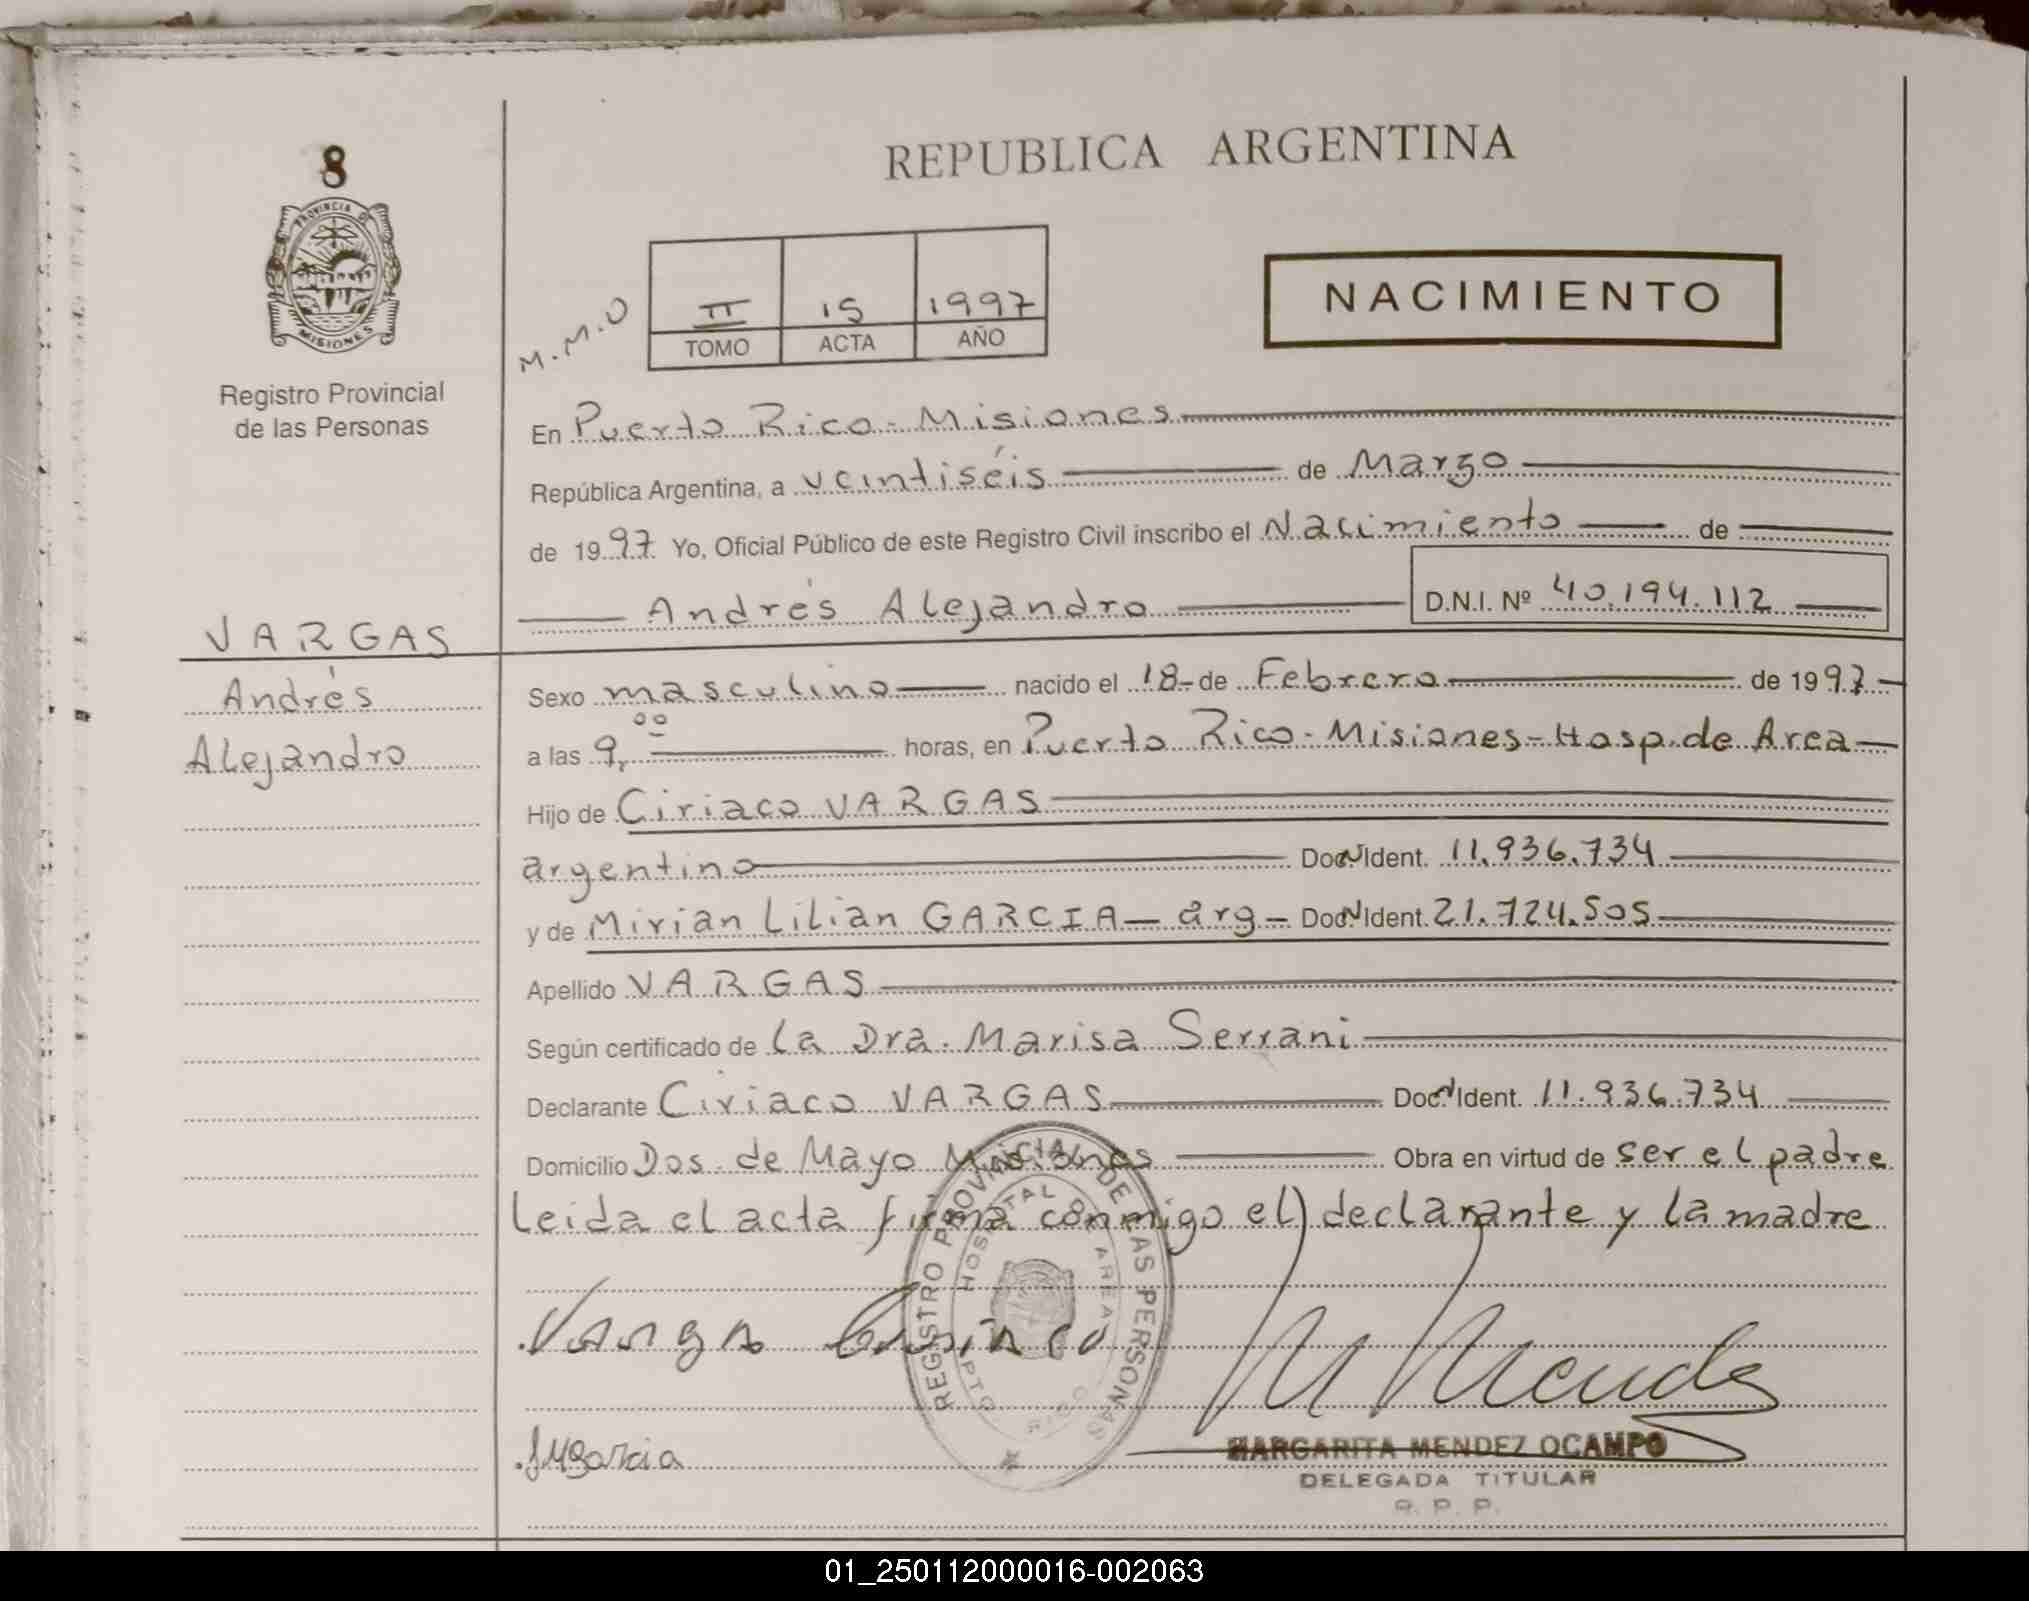 8
PROVINCIA DE
MISIONES
Registro Provincial
de las Personas
REPUBLICA ARGENTINA
M.M.O
II 15 1997
TOMO ACTA AÑO
NACIMIENTO
En Puerto Rico - Misiones
República Argentina, a veintiséis de Marzo
de 1997 Yo, Oficial Público de este Registro Civil inscribo el Nacimiento de
Andrés Alejandro D.N.I. Nº 40.194.112
VARGAS
Andrés
Alejandro
Sexo masculino nacido el 18- de Febrero de 1997
a las 9,00 horas, en Puerto Rico - Misiones - Hosp. de Area
Hijo de Ciriaco VARGAS
argentino Doc N Ident. 11.936.734
y de Mirian Lilian GARCIA - arg - Doc N Ident. 21.724.505
Apellido VARGAS
Según certificado de la Dra. Marisa Serrani
Declarante Ciriaco VARGAS Doc N Ident. 11.936.734
Domicilio Dos de Mayo Misiones Obra en virtud de ser el padre
Leida el acta firma conmigo el) declarante y la madre
REGISTRO PROVINCIAL DE LAS PERSONAS
HOSPITAL DE AREA
PTO RICO
Vargas Ciriaco
M Mendez
Garcia
MARGARITA MENDEZ OCAMPO
DELEGADA TITULAR
R. P. P.
01_250112000016-002063